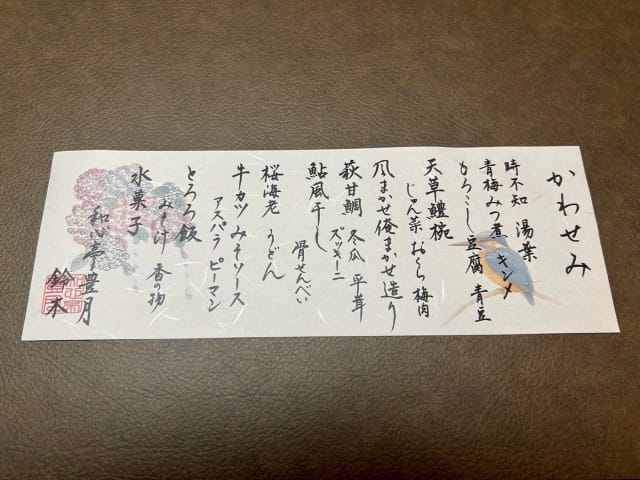 かわせみ
時不知 湯葉
青梅みつ煮 キンメ
もろこし豆腐 青豆
天草鱧椀
じゅん菜 おくら 梅肉
風まかせ俺まかせ造り
萩甘鯛 冬瓜 平茸
ズッキーニ
鮎風干し
骨せんべい
桜海老 うどん
牛カツ みそソース
アスパラ ピーマン
とろろ飯
みそ汁 香の物
水菓子
和心亭豊月
鈴木